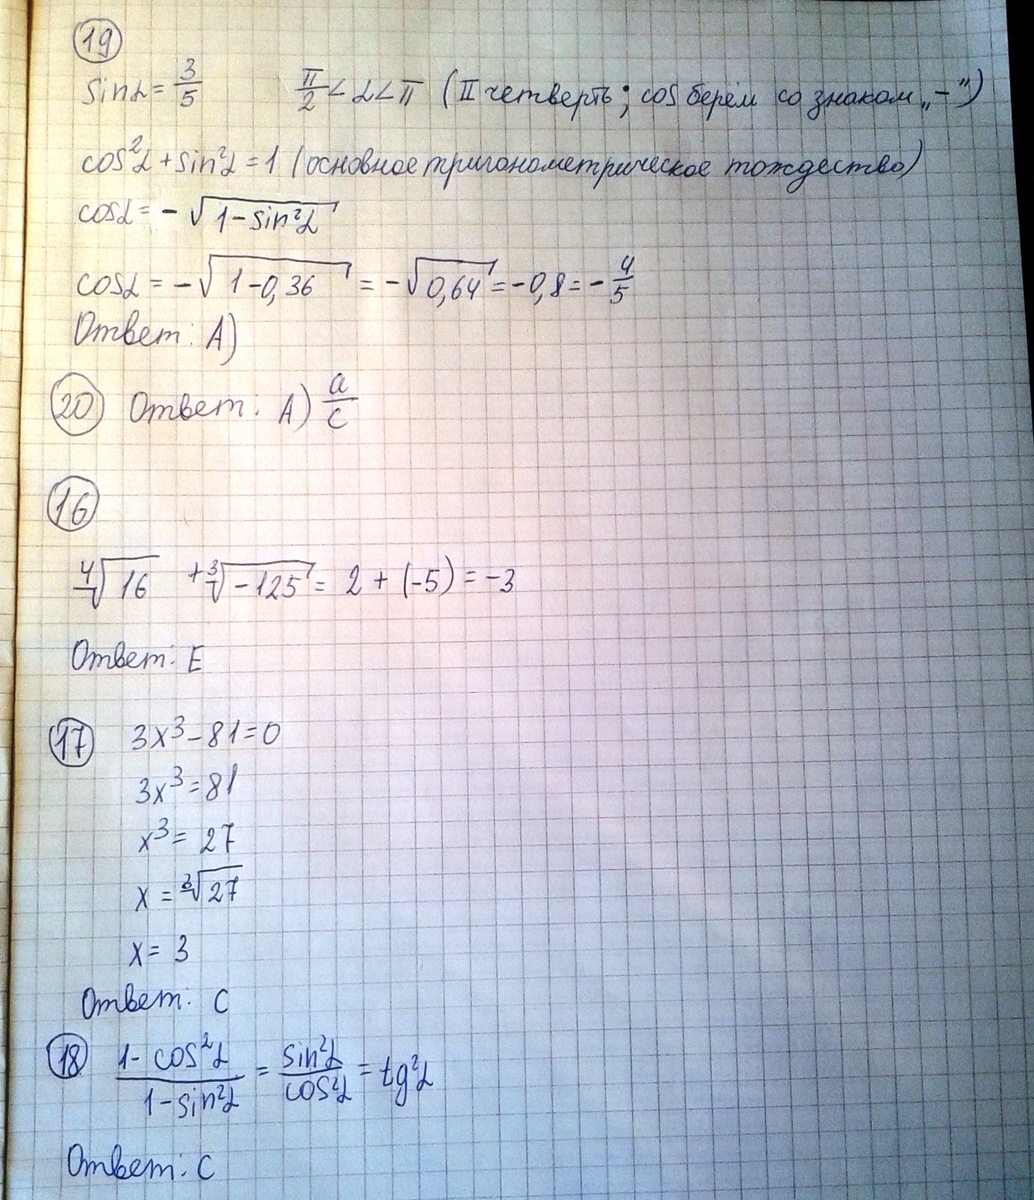 19
sinα = 3/5 π/2 < α < π (II четверть; cos берём со знаком „-")
cos²α + sin²α = 1 (основное тригонометрическое тождество)
cosα = - √(1 - sin²α)
cosα = -√(1-0,36) = -√(0,64) = -0,8 = -4/5
Ответ: А)
20 Ответ: А) a/c
16
⁴√16 + ³√-125 = 2 + (-5) = -3
Ответ: Е
17 3x³ - 81 = 0
3x³ = 81
x³ = 27
x = ³√27
x = 3
Ответ: С
18 (1 - cos²α)/(1 - sin²α) = sin²α/cos²α = tg²α
Ответ: С